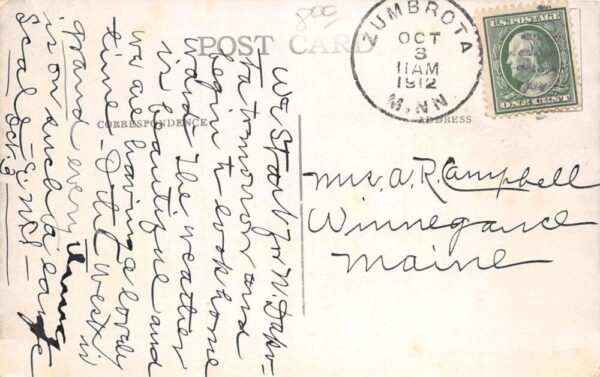 800
POST CARD
ZUMBROTA
OCT
3
11AM
1912
MINN.
U.S. POSTAGE
ONE CENT
CORRESPONDENCE
ADDRESS
We Start for N. Dako-
ta tomorrow and
begin to look home
ward. The weather
is beautiful and
we are having a lovely
time. The West is
grand every thing
is on such a large
scale.
Oct. 3
Mrs. A. R. Campbell
Winnegance
Maine